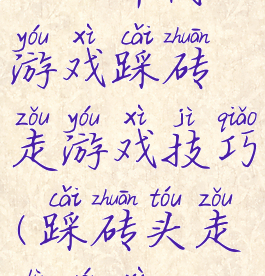 yóu xì cǎi zhuān
游戏踩砖
zǒu yóu xì jì qiǎo
走游戏技巧
cǎi zhuān tóu zǒu
(踩砖头走